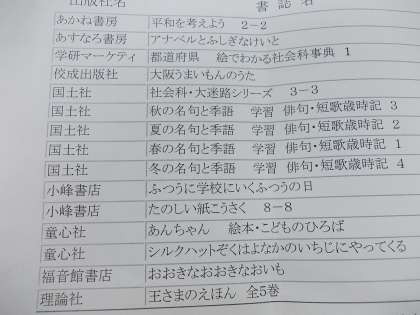 出版社名 書誌名
あかね書房 平和を考えよう 2-2
あすなろ書房 アナベルとふしぎなけいと
学研マーケティ 都道府県 絵でわかる社会科事典 1
佼成出版社 大阪うまいもんのうた
国土社 社会科・大迷路シリーズ 3-3
国土社 秋の名句と季語 学習 俳句・短歌歳時記 3
国土社 夏の名句と季語 学習 俳句・短歌歳時記 2
国土社 春の名句と季語 学習 俳句・短歌歳時記 1
国土社 冬の名句と季語 学習 俳句・短歌歳時記 4
小峰書店 ふつうに学校にいくふつうの日
小峰書店 たのしい紙こうさく 8-8
童心社 あんちゃん 絵本・こどものひろば
童心社 シルクハットぞくはよなかのいちじにやってくる
福音館書店 おおきなおおきなおいも
理論社 王さまのえほん 全5巻